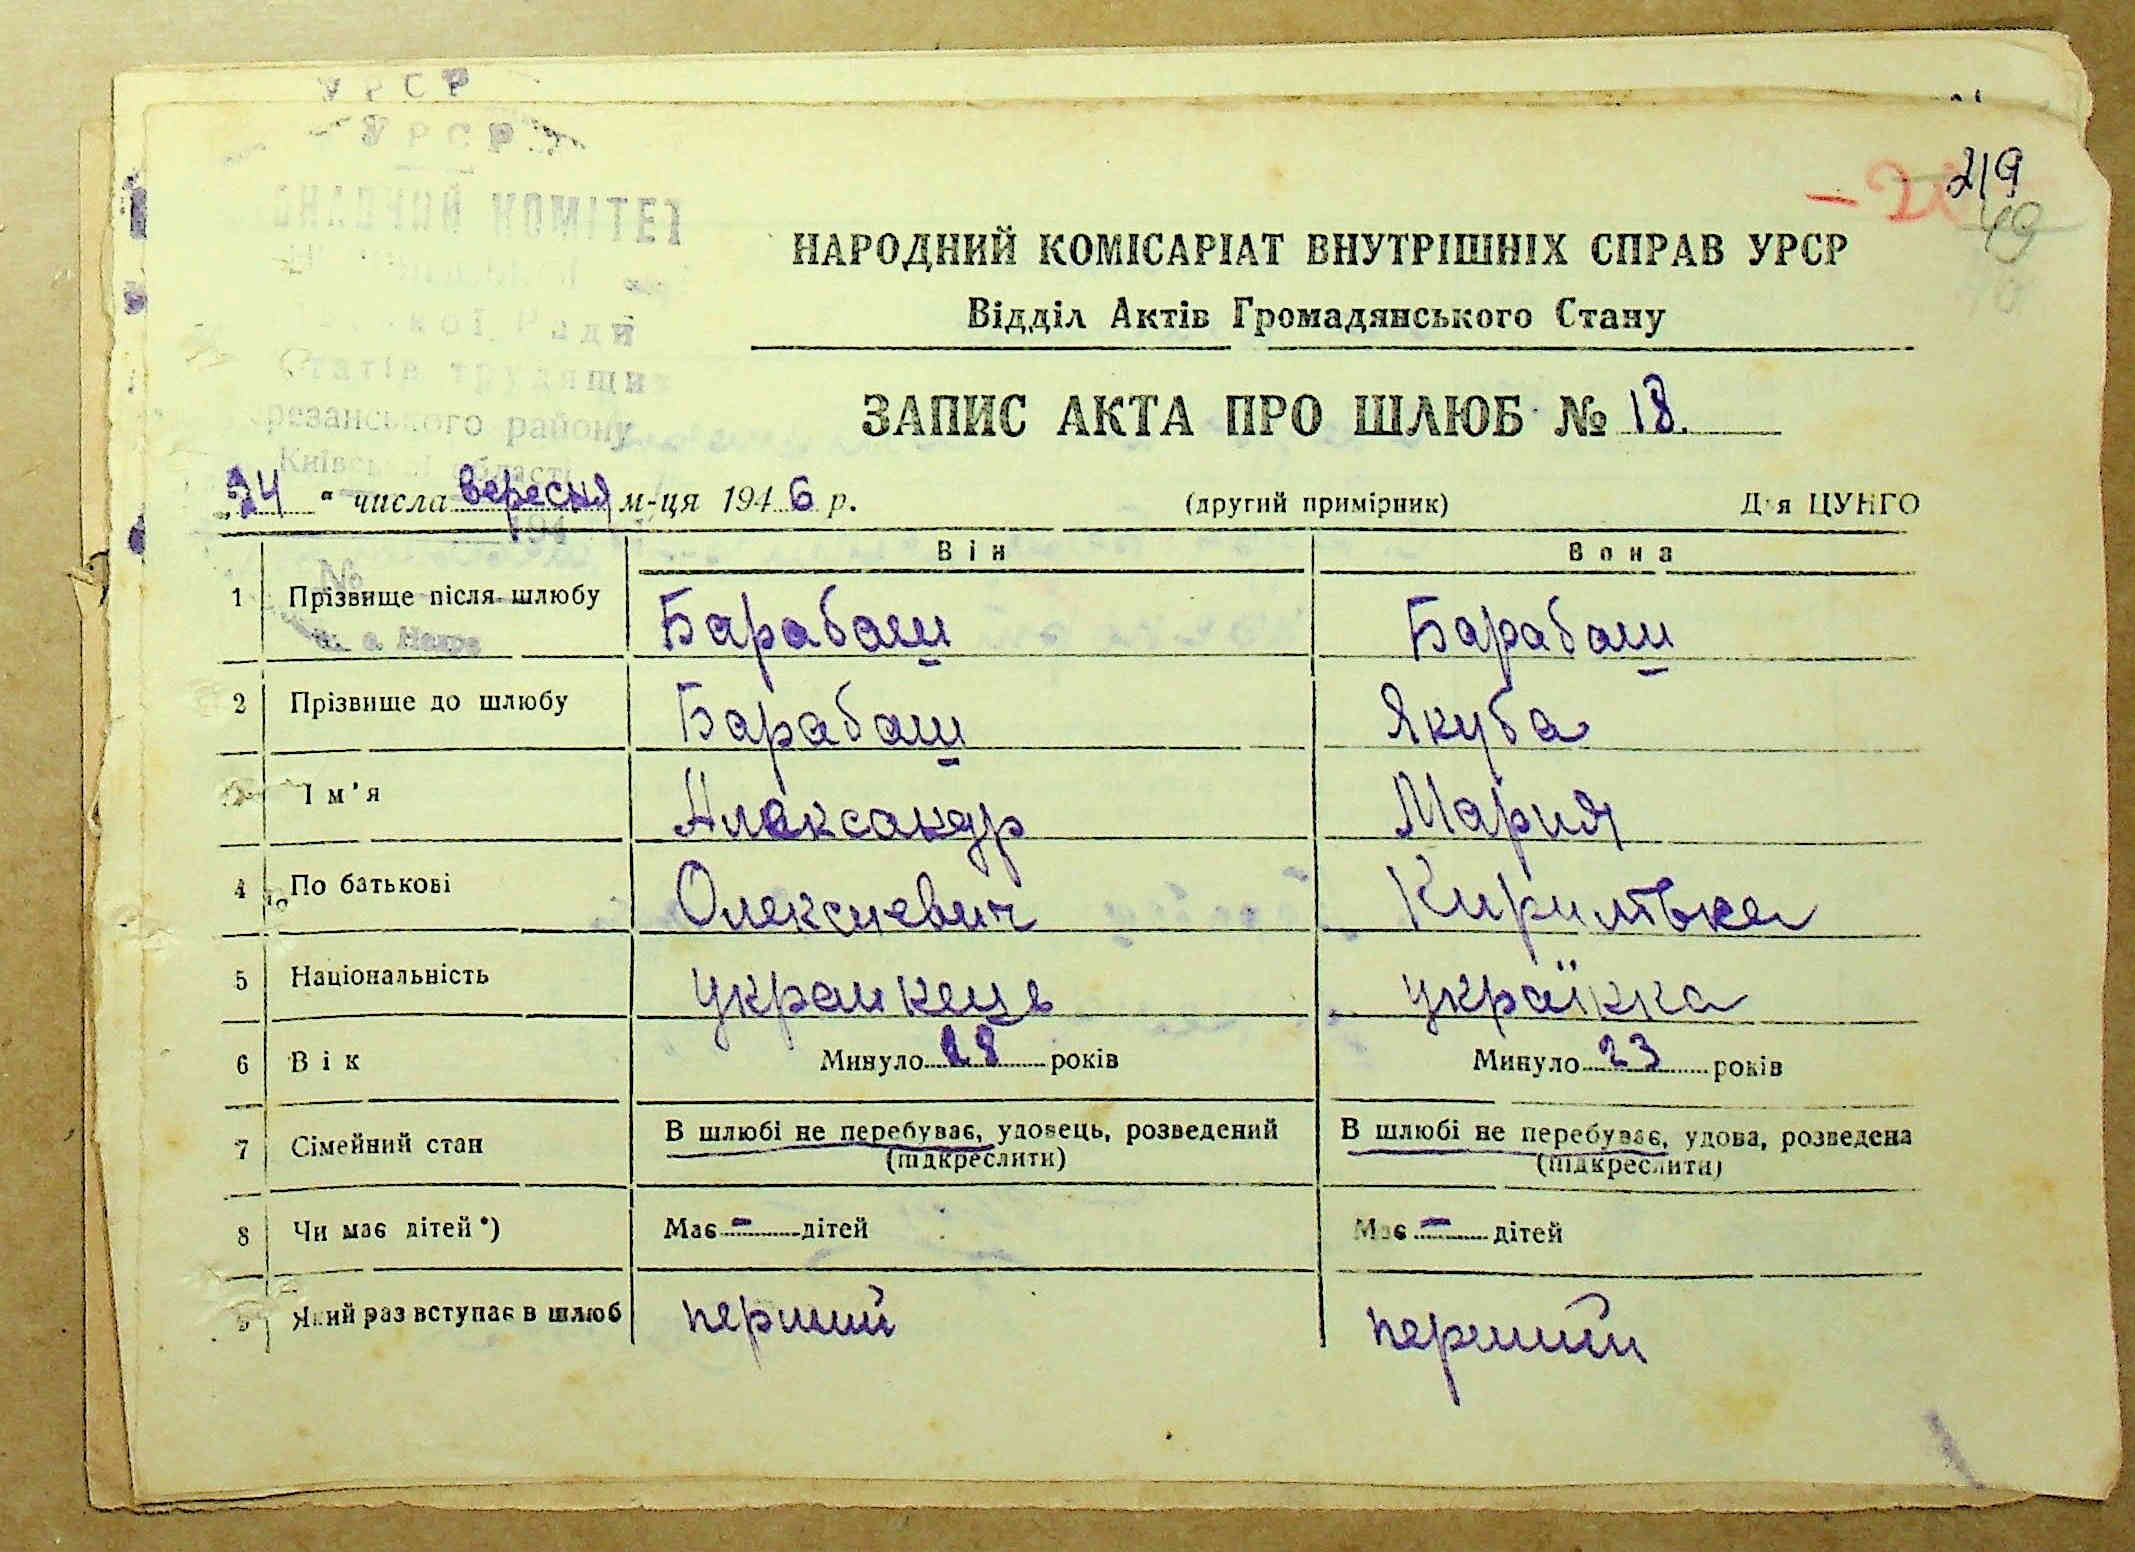 УРСР
УРСР
КОМІТЕТ
Ради
трудящих
району
Київської області
194
№
219
49
НАРОДНИЙ КОМІСАРІАТ ВНУТРІШНІХ СПРАВ УРСР
Відділ Актів Громадянського Стану
ЗАПИС АКТА ПРО ШЛЮБ № 18.
„24“ числа вересня м-ця 1946 р. (другий примірник) Для ЦУНГО
Він Вона
1 Прізвище після шлюбу Барабаш Барабаш
2 Прізвище до шлюбу Барабаш Якуба
3 Ім'я Александр Мария
4 По батькові Олексиевич Кирилівна
5 Національність украинець українка
6 Вік Минуло 28 років Минуло 23 років
7 Сімейний стан В шлюбі не перебуває, удовець, розведений В шлюбі не перебуває, удова, розведена
(підкреслити) (підкреслити)
8 Чи має дітей*) Має - дітей Має - дітей
9 Який раз вступає в шлюб перший перший